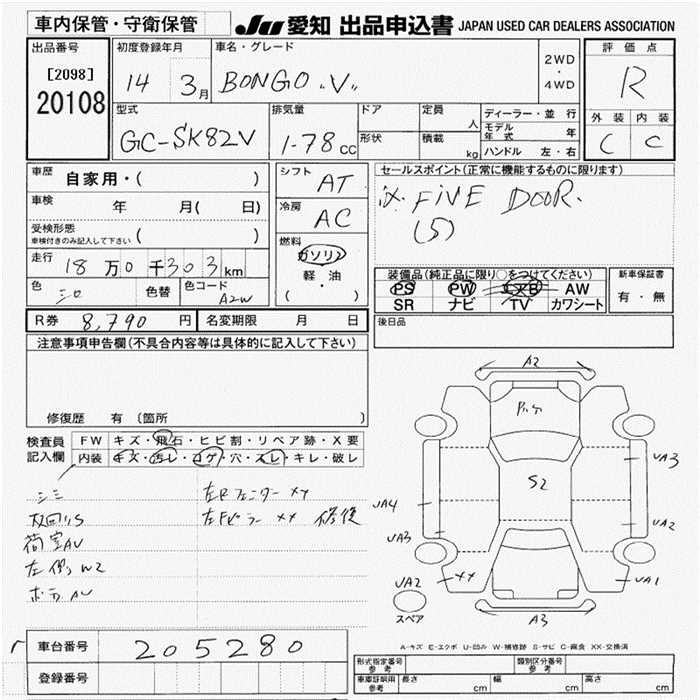 車内保管・守衛保管
JU 愛知 出品申込書 JAPAN USED CAR DEALERS ASSOCIATION
出品番号
[2098]
20108
初度登録年月
14 3月
車名・グレード
BONGO "V"
2WD
・
4WD
評価点
R
外装 内装
C C
型式
GC-SK82V
排気量
1-78 cc
ドア
形状
定員
人
積載
kg
ディーラー・並行
モデル年式 年
ハンドル 左・右
車歴
自家用・( )
車検
年 月( 日)
受検形態
車検付きのみ記入して下さい ( )
走行
18万0千303km
色
シロ
色替
色コード
A2W
シフト
AT
冷房
AC
燃料
ガソリン
軽・油
( )
セールスポイント(正常に機能するものに限ります)
※ FIVE DOOR.
(5)
装備品(純正品に限り○をつけてください)
PS PW エアB AW
SR ナビ TV カワシート
新車保証書
有・無
後日品
R券 8,790 円
名変期限 月 日
注意事項申告欄(不具合内容等は具体的に記入して下さい)
修復歴 有 〔箇所 〕
検査員
記入欄
FW キズ・飛石・ヒビ割・リペア跡・X要
内装 キズ・汚レ・コゲ・穴・スレ・キレ・破レ
シミ
荷室AV
左側W2
左Rフェンダー XX
左Fピラー XX 修復
A2
S2
UA3
UA4
UA3
UA2
UA2
XX
UA1
A3
スペア
A-キズ E-エクボ U-凹み W-補修跡 S-サビ C-腐食 XX-交換済
車台番号 205280
登録番号
形式指定番号
参考
類別区分番号
参考
車庫証明用
参考
長さ cm
幅 cm
高さ cm